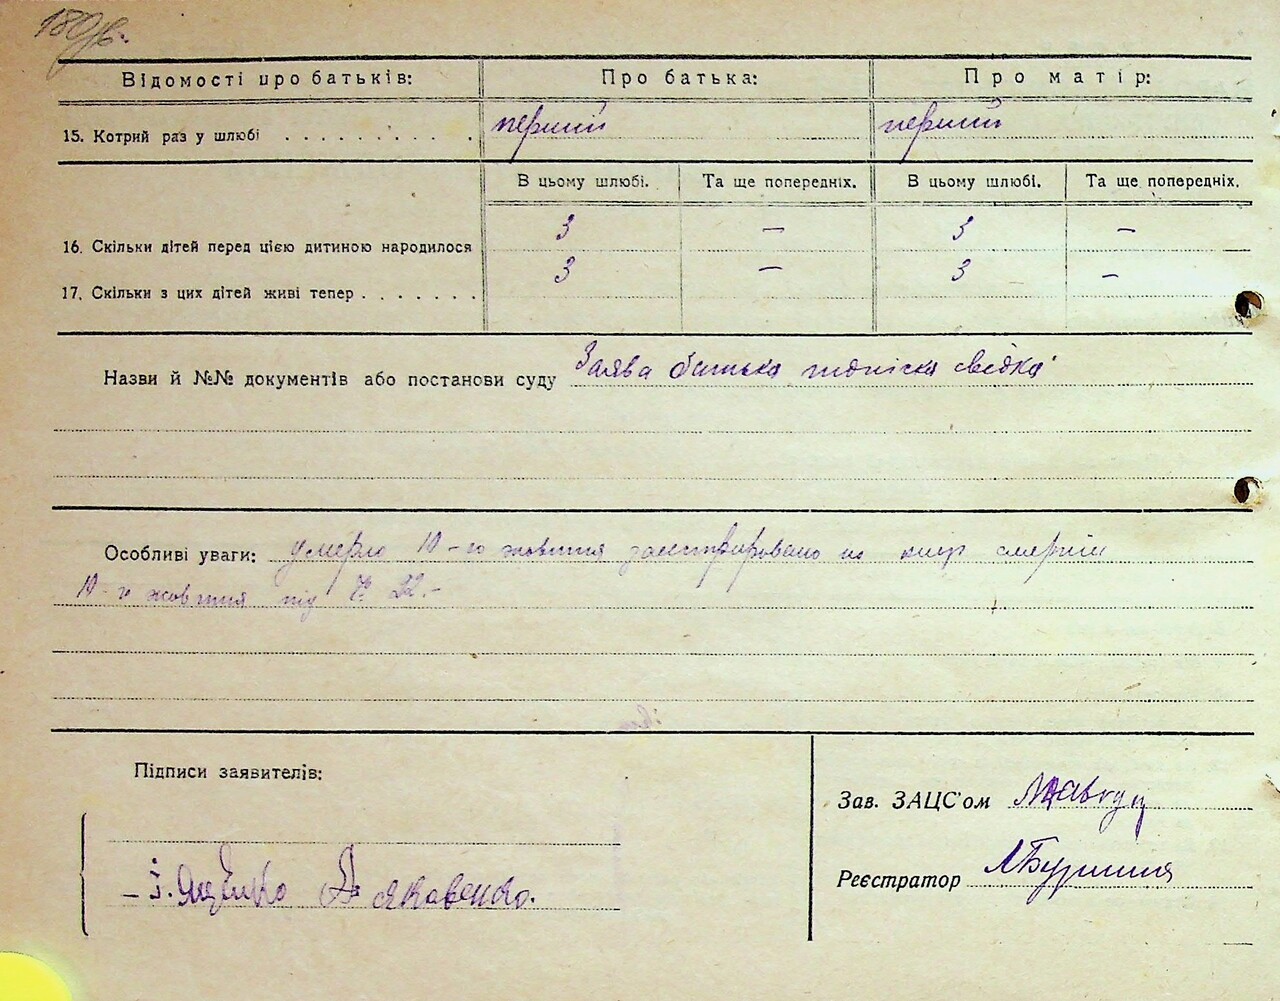 180 зв.
Відомості про батьків: Про батька: Про матір:
15. Котрий раз у шлюбі . . . . . . . . . . перший перший
В цьому шлюбі. Та ще попередніх. В цьому шлюбі. Та ще попередніх.
16. Скільки дітей перед цією дитиною народилося 3 — 3 —
17. Скільки з цих дітей живі тепер . . . . . . . 3 — 3 —
Назви й №№ документів або постанови суду Заява батька підписка свідка
Особливі уваги: умерло 10-го жовтня заєстрировано по книзі смертій
10-го жовтня під № 22.-
Підписи заявителів:
Зав. ЗАЦС'ом
– І. Яценко Д. Яковенко.
Реєстратор